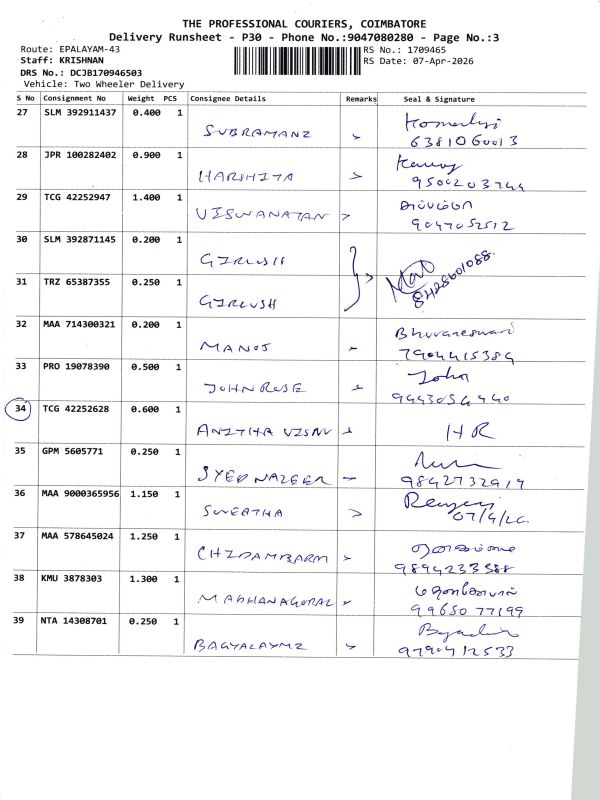 THE PROFESSIONAL COURIERS, COIMBATORE
Delivery Runsheet - P30 - Phone No.:9047080280 - Page No.:3
Route: EPALAYAM-43
Staff: KRISHNAN
DRS No.: DCJB170946503
Vehicle: Two Wheeler Delivery
RS No.: 1709465
RS Date: 07-Apr-2026
S No Consignment No Weight PCS Consignee Details Remarks Seal & Signature
27 SLM 392911437 0.400 1
SUBRAMANI
6381060013
28 JPR 100282402 0.900 1
HARSHITA
29 TCG 42252947 1.400 1
VISWANATAN
9047052512
30 SLM 392871145 0.200 1
GIRLUSH
8428601088.
31 TRZ 65387355 0.250 1
GIRLUSH
32 MAA 714300321 0.200 1 Bhuvaneswari
MANOJ 7904415384
33 PRO 19078390 0.500 1 John
JOHN ROSE 9443054440
34 TCG 42252628 0.600 1
ANITHA VISNU HR
35 GPM 5605771 0.250 1
SYED NAZEER 9842732919
36 MAA 9000365956 1.150 1
SWEATHA 07/4/26.
37 MAA 578645024 1.250 1
CHIDAMBARM 9894233588
38 KMU 3878303 1.300 1
MADHANAGOPAL 9965077199
39 NTA 14308701 0.250 1
BAGYALAYMI 9790412533